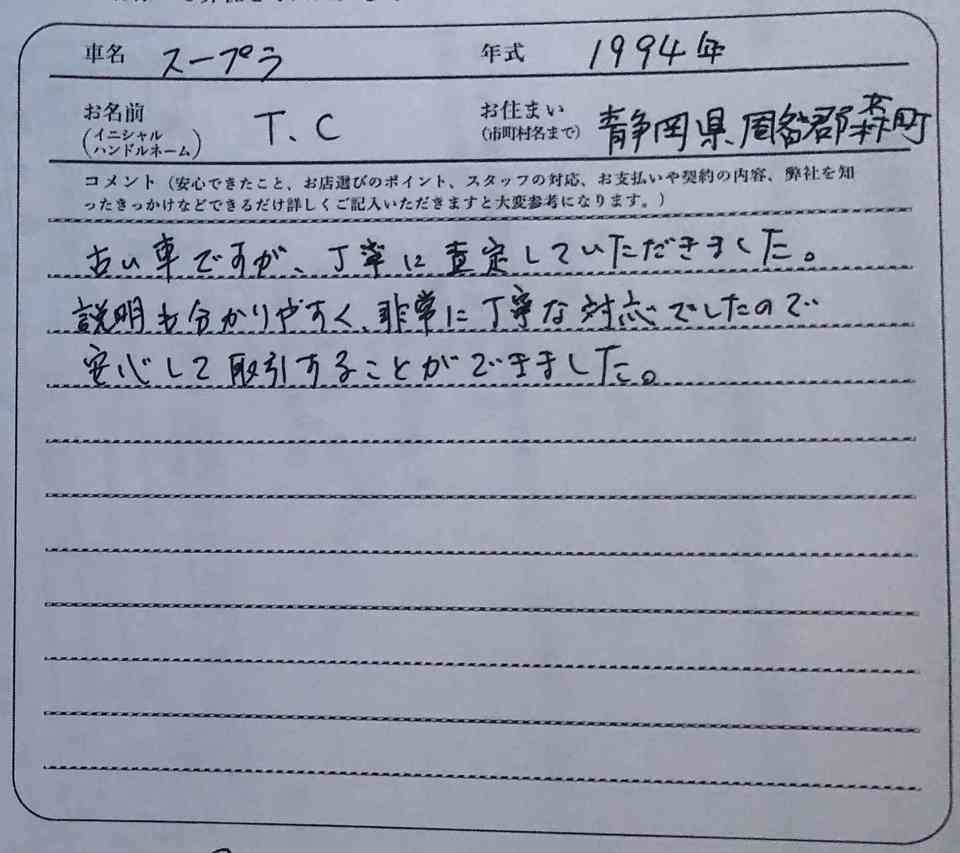 車名 スープラ 年式 1994年
お名前 (イニシャル ハンドルネーム) T.C お住まい (市町村名まで) 静岡県周智郡森町
コメント（安心できたこと、お店選びのポイント、スタッフの対応、お支払いや契約の内容、弊社を知
ったきっかけなどできるだけ詳しくご記入いただきますと大変参考になります。）
古い車ですが、丁寧に査定していただきました。
説明も分かりやすく、非常に丁寧な対応でしたので
安心して取引することができました。